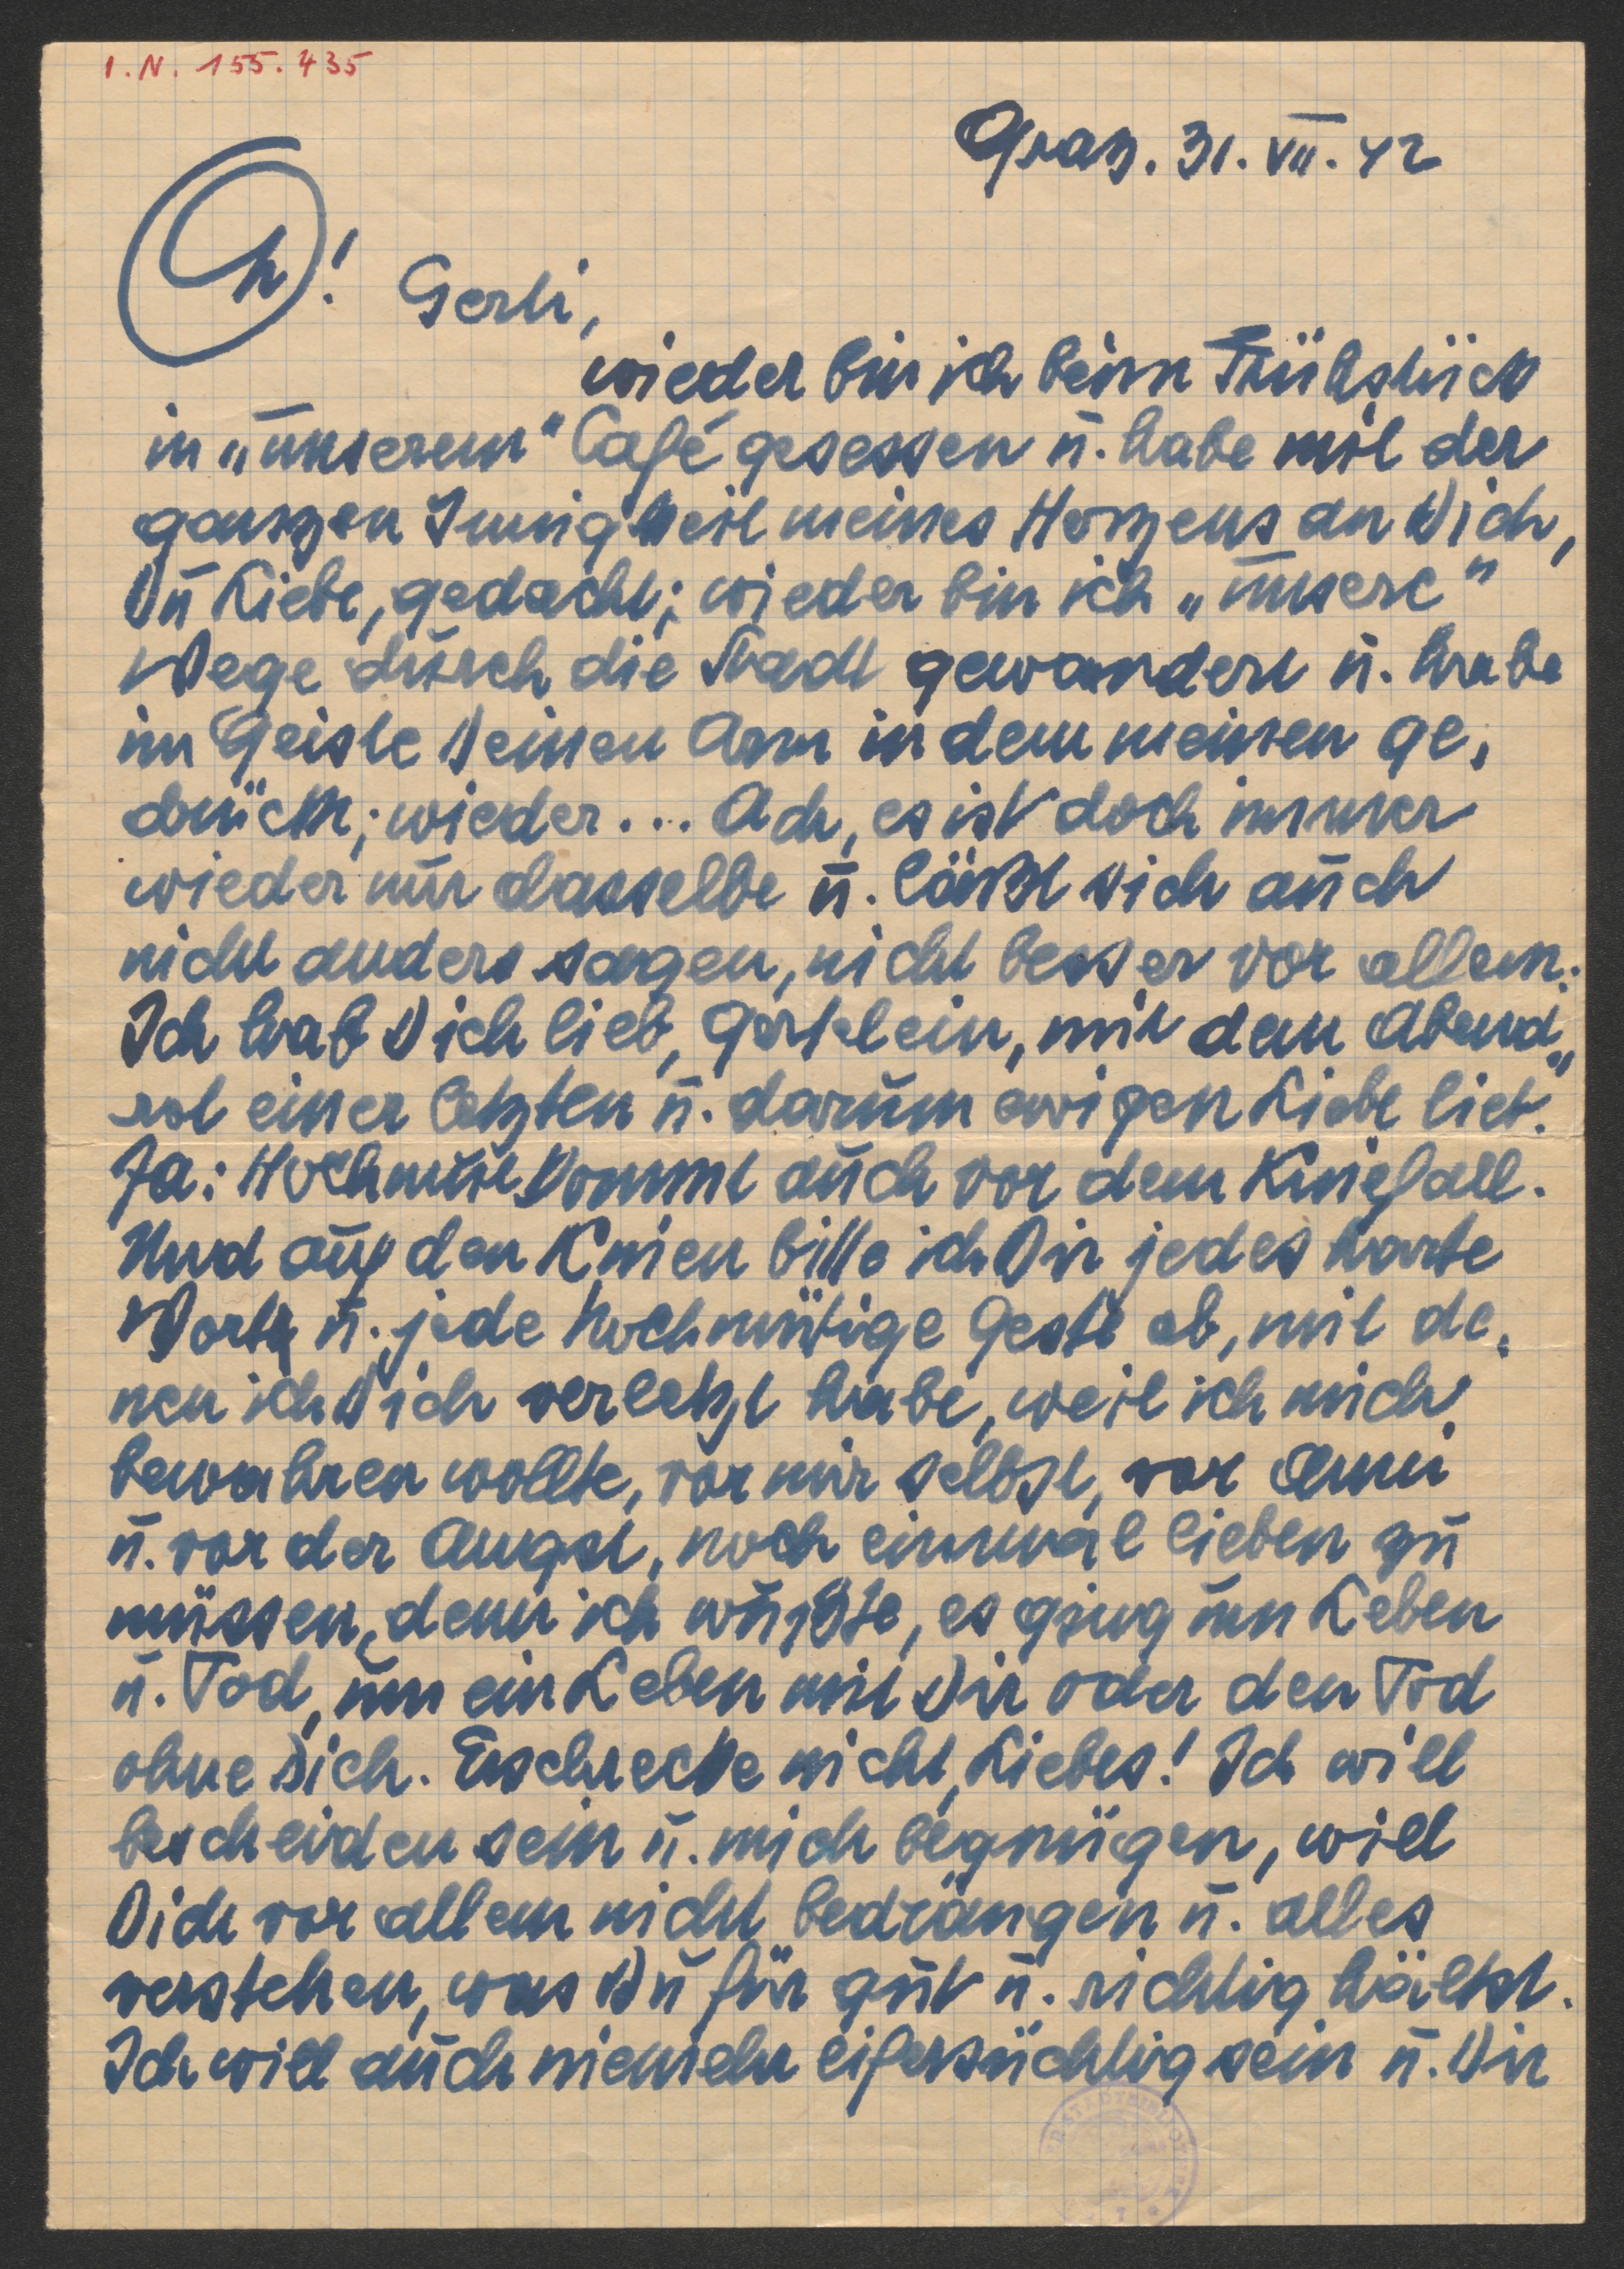 I.N. 155.435
Graz. 31. VII. 42
Oh! Gerti,
wieder bin ich beim Frühstück
in „unserem" Café gesessen u. habe mit der
ganzen Innigkeit meines Herzens an Dich,
Du Liebe, gedacht; wieder bin ich „unsere"
Wege durch die Stadt gewandert u. habe
im Geiste Deinen Arm in dem meinen ge-
drückt; wieder... Ach, es ist doch immer
wieder nur dasselbe u. läßt sich auch
nicht anders sagen, nicht besser vor allem:
Ich hab Dich lieb, Gertlein, mit dem Abend-
rot einer letzten u. darum ewigen Liebe lieb."
Ja: Hochmut kommt auch vor dem Kniefall.
Und auf den Knien bitte ich Dir jedes harte
Wort u. jede hochmütige Geste ab, mit de-
nen ich Dich verletzt habe, weil ich mich
bewahren wollte, vor mir selbst, vor Anni
u. vor der Angst, noch einmal lieben zu
müssen, denn ich wußte, es ging um Leben
u. Tod, um ein Leben mit Dir oder den Tod
ohne Dich. Erschrecke nicht, Liebes! Ich will
bescheiden sein u. mich begnügen, will
Dich vor allem nicht bedrängen u. alles
verstehen, was Du für gut u. richtig hältst.
Ich will auch niemehr eifersüchtig sein u. Dir